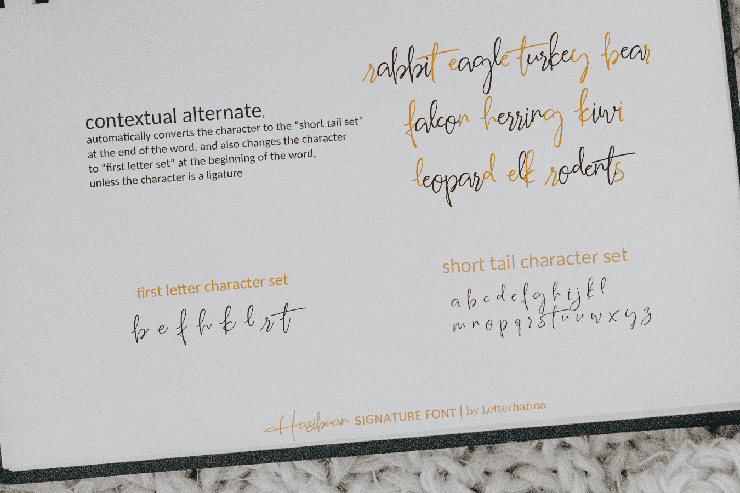 rabbit eagle turkey bear
falcon herring kiwi
leopard elk rodents
contextual alternate,
automatically converts the character to the "short tail set"
at the end of the word, and also changes the character
to "first letter set" at the beginning of the word,
unless the character is a ligature
first letter character set
b e f h k l r t
short tail character set
a b c d e f g h i j k l
m n o p q r s t u v w x y z
Hasibuan SIGNATURE FONT | by Letterhanna